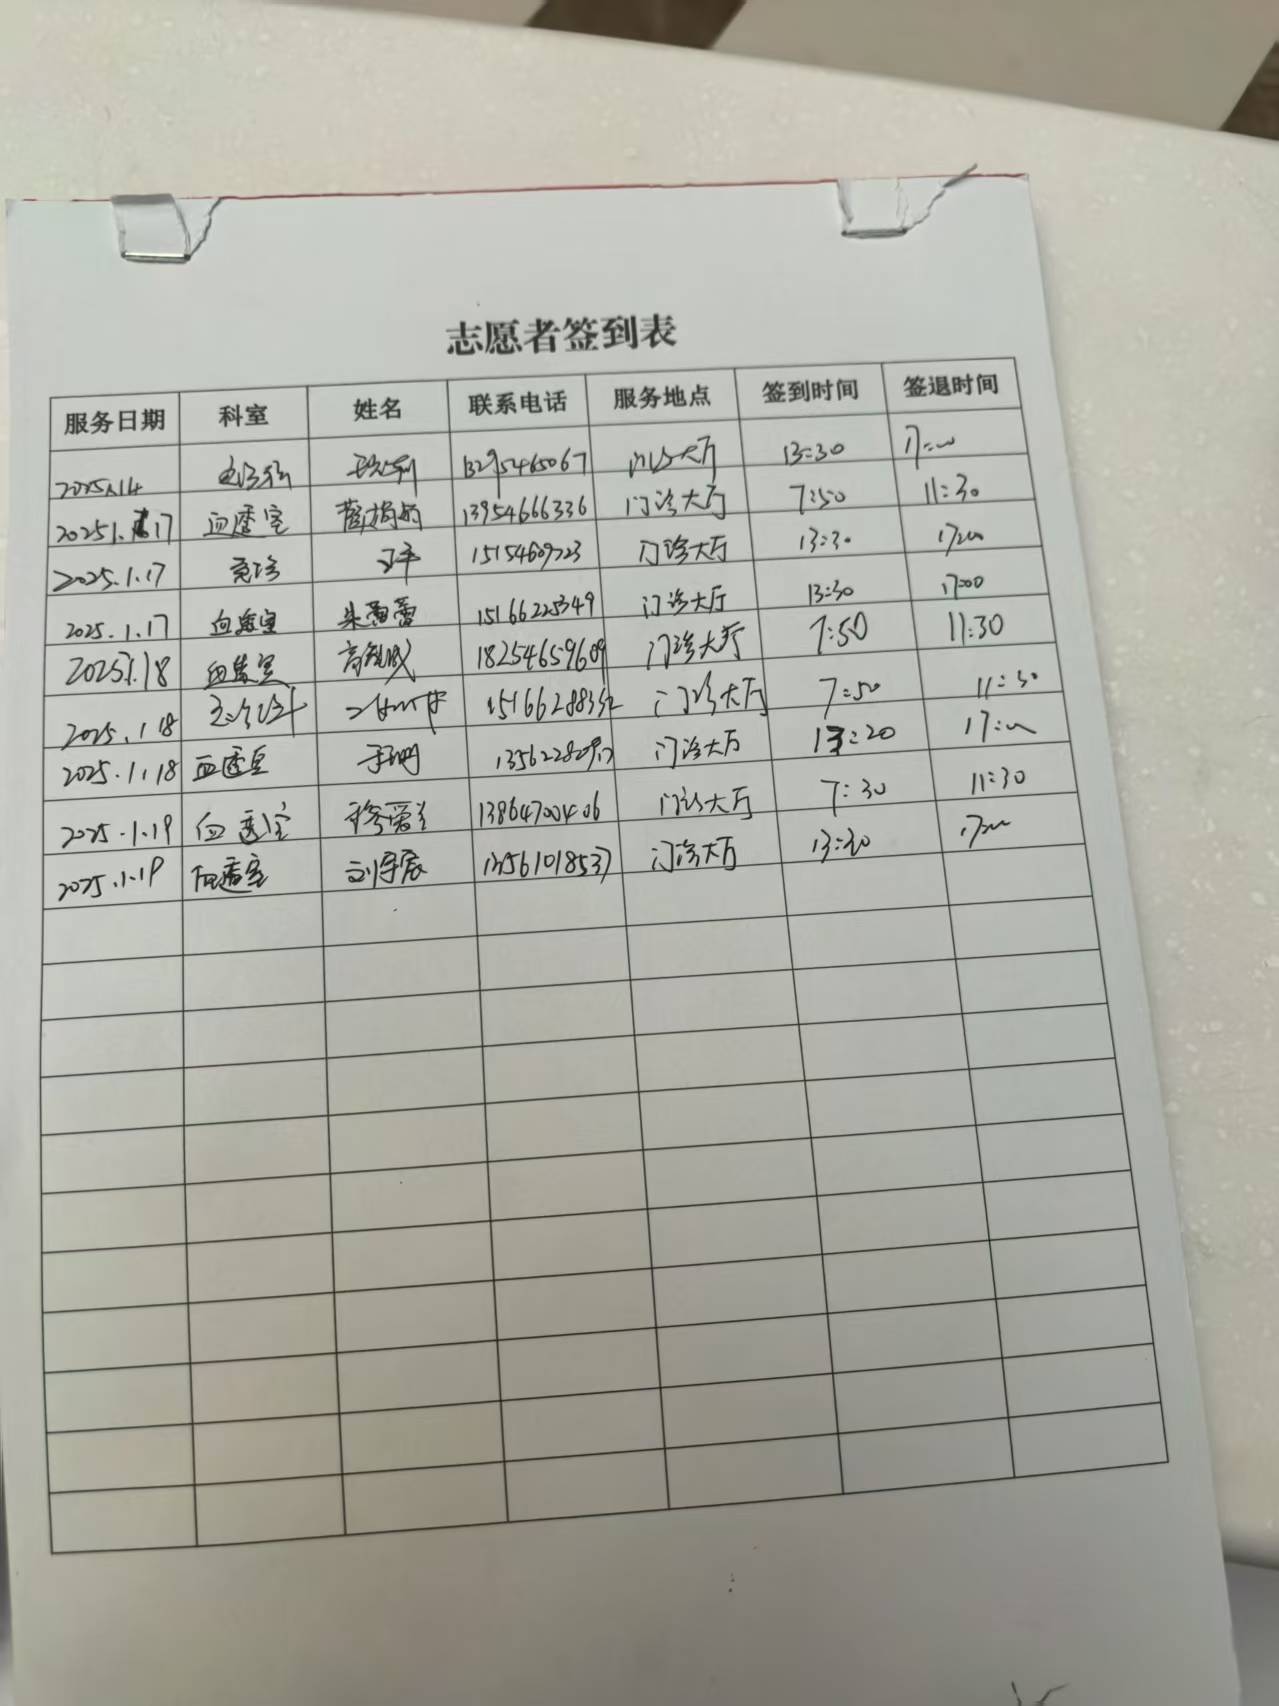 志愿者签到表
服务日期 科室 姓名 联系电话 服务地点 签到时间 签退时间
2025.1.14 13295465067 门诊大厅 13:30 17:00
2025.1.17 血透室 13954666336 门诊大厅 7:50 11:30
2025.1.17 15154609723 门诊大厅 13:30 17:00
2025.1.17 血透室 朱蕾蕾 15166225349 门诊大厅 13:30 17:00
2025.1.18 血透室 18254659609 门诊大厅 7:50 11:30
2025.1.18 门诊大厅 7:50 11:30
2025.1.18 血透室 门诊大厅 13:20 17:00
2025.1.19 血透室 13864700406 门诊大厅 7:30 11:30
2025.1.19 血透室 刘宇辰 13561018537 门诊大厅 13:30 17:00